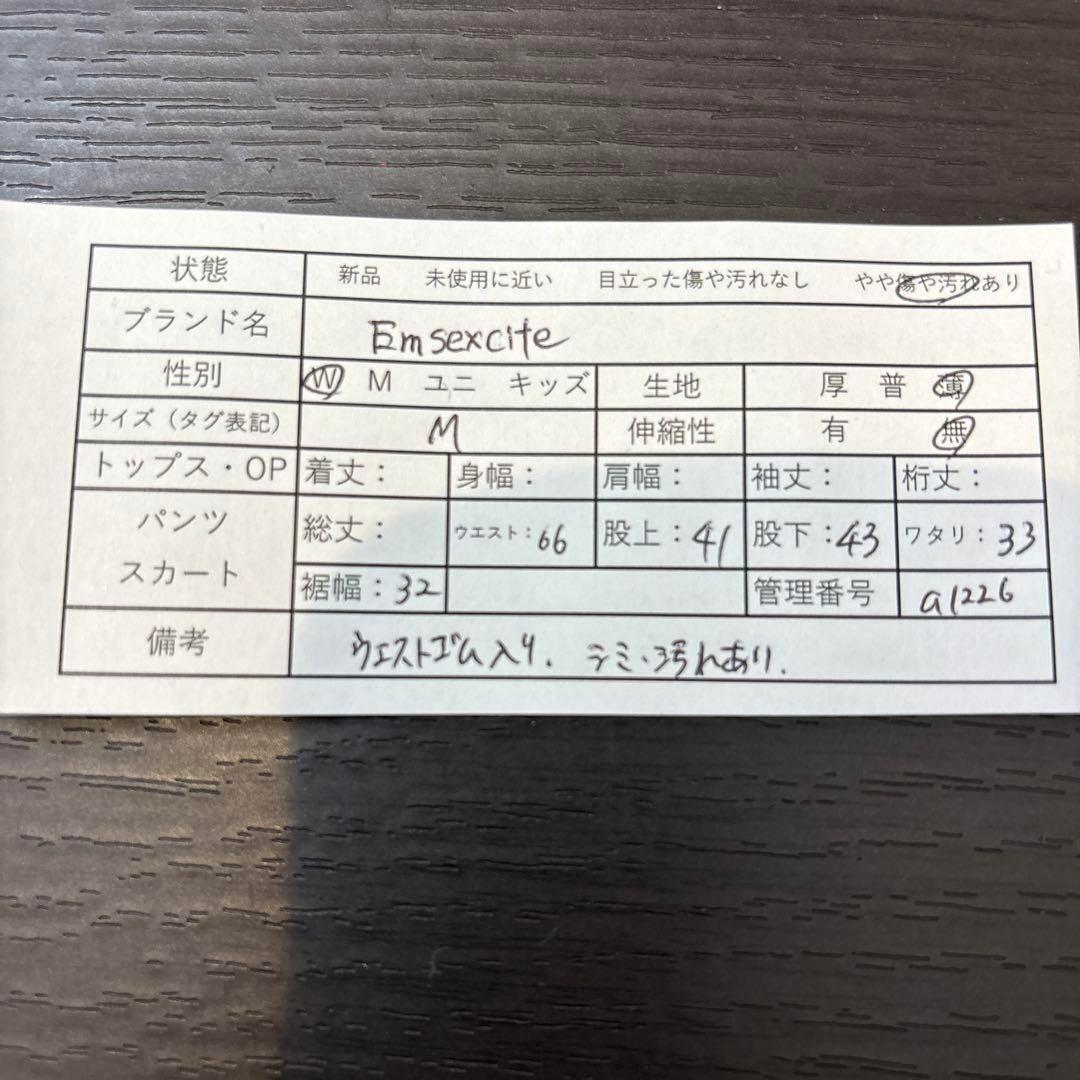 状態 新品 未使用に近い 目立った傷や汚れなし やや傷や汚れあり
ブランド名 Emsexcite
性別 W M ユニ キッズ 生地 厚 普 薄
サイズ（タグ表記） M 伸縮性 有 無
トップス・OP 着丈： 身幅： 肩幅： 袖丈： 裄丈：
パンツ 総丈： ウエスト：66 股上：41 股下：43 ワタリ：33
スカート 裾幅：32 管理番号 a1226
備考 ウエストゴム入り. シミ・汚れあり.